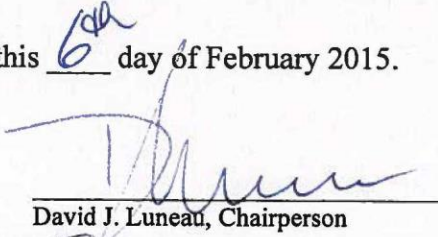 this 6th day of February 2015.
David J. Luneau, Chairperson